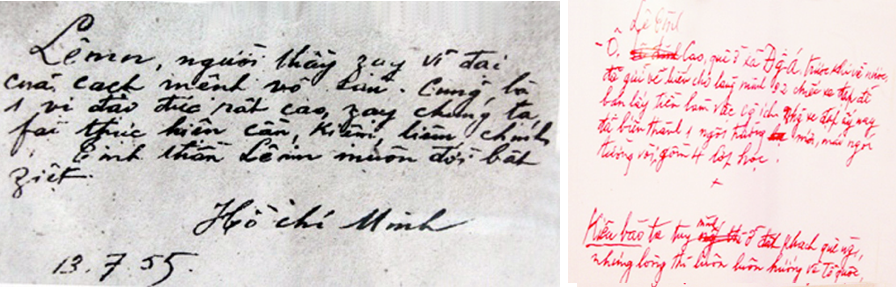 Lênin, người thầy zạy vĩ đại
của cách mệnh vô sản. Cũng là
1 vị đạo đức rất cao, zạy chúng ta
fải thực hiện cần, kiệm, liêm, chính.
Tinh thần Lênin muôn đời bất
ziệt.
Hồ Chí Minh
13.7.55.
- Ô. Lao, quê ở xã trước khi về nước,
đã gửi về biếu cho làng mình 102 chiếc xe đạp để
bán lấy tiền làm việc công ích. xe đạp ấy nay
đã biến thành 1 ngôi trường mới, mái ngói
tường vôi, gồm 4 lớp học.
+
Kiều bào ta tuy mình ở phách quê người,
nhưng lòng thì luôn luôn hướng về Tổ quốc,